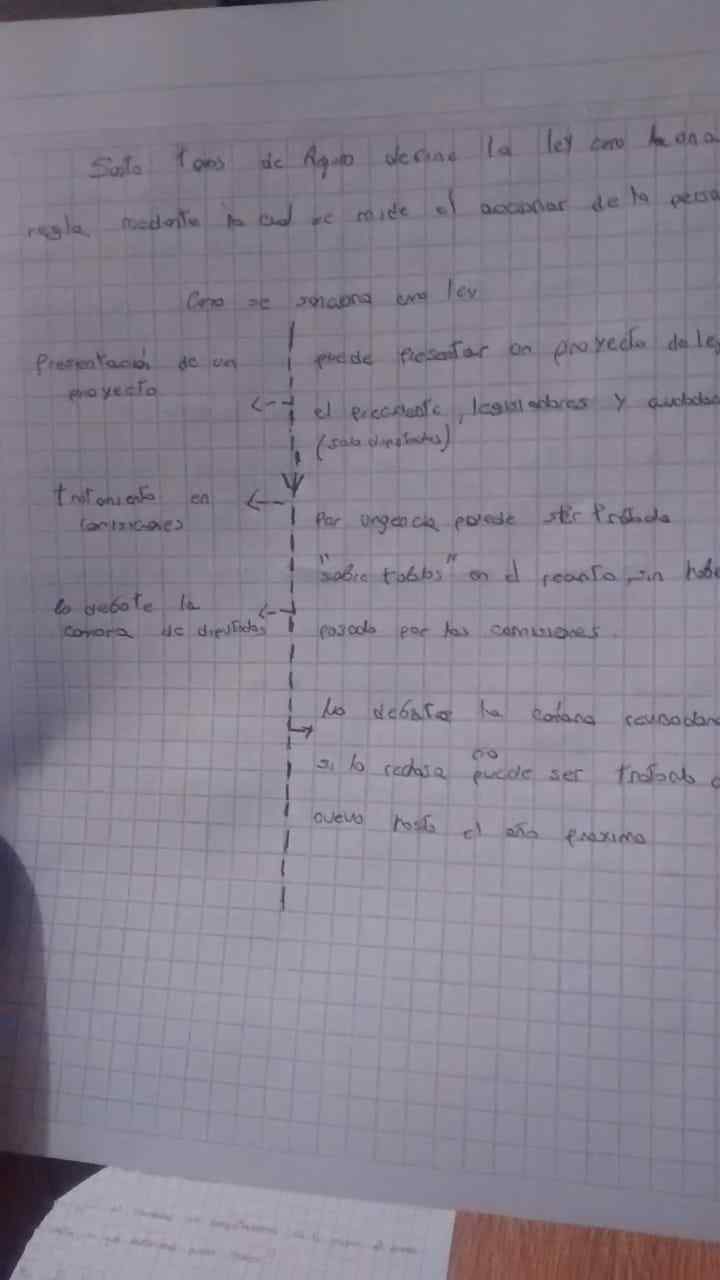 Santo Tomas de Aquino define la ley como la una
regla mediante la cual se mide el accionar de la perso
Como se sanciona una ley
Presentación de un
proyecto
puede presentar un proyecto de le
el precidente, legisladores y ciudada
(solo diputados)
tratamiento en
comiciones
Por urgencia puede ser tratada
"sobre tablas" en el recinto, sin habe
pasado por las comisiones.
lo debate la
camara de diputados
Lo debate la camara revisadora
si lo rechasa no puede ser tratado d
nuevo hasta el año proximo